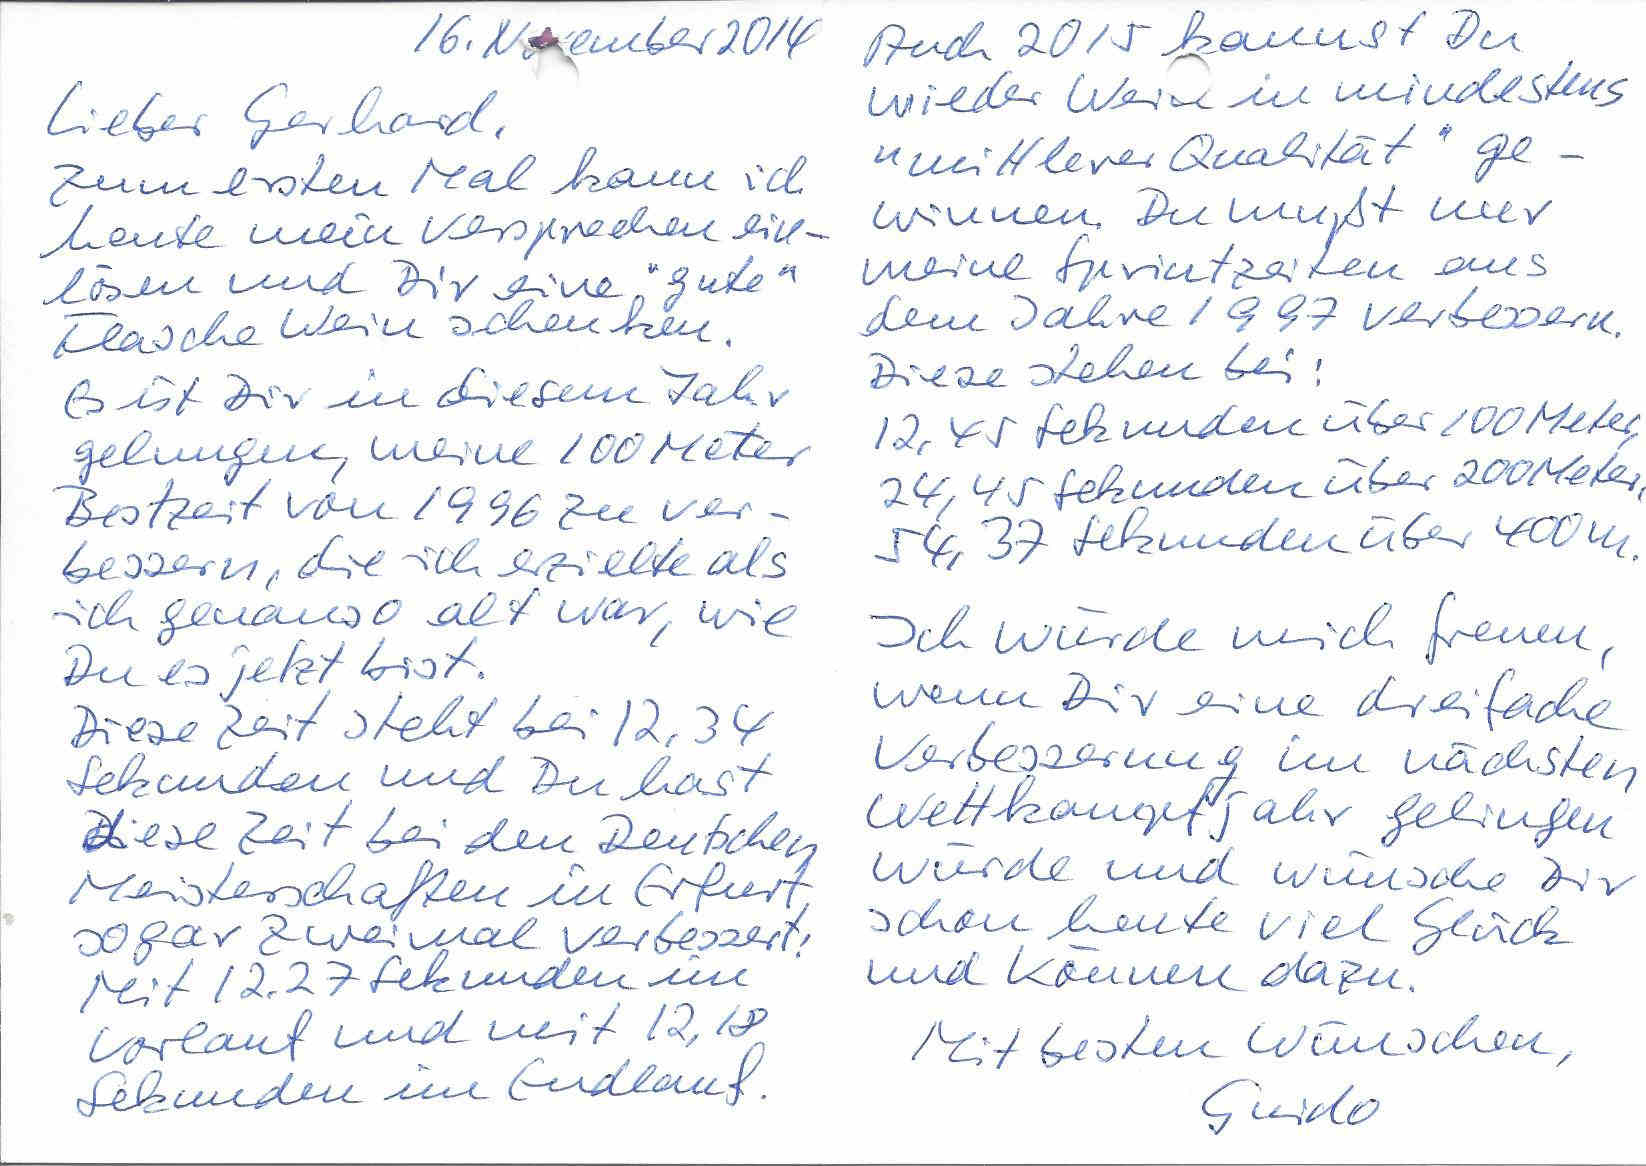 16. November 2014
Lieber Gerhard,
zum ersten Mal kann ich
heute mein Versprechen ein-
lösen und Dir eine "gute"
Flasche Wein schenken.
Es ist Dir in diesem Jahr
gelungen, meine 100 Meter
Bestzeit von 1996 zu ver-
bessern, die ich erzielte als
ich genauso alt war, wie
Du es jetzt bist.
Diese Zeit steht bei 12,34
Sekunden und Du hast
diese Zeit bei den Deutschen
Meisterschaften in Erfurt,
sogar zweimal verbessert!
Mit 12.27 Sekunden im
Vorlauf und mit 12,18
Sekunden im Endlauf.
Auch 2015 kannst Du
wieder Wein in mindestens
"mittlerer Qualität" ge-
winnen. Du mußt nur
meine Sprintzeiten aus
dem Jahre 1997 verbessern.
Diese stehen bei:
12,45 Sekunden über 100 Meter,
24,45 Sekunden über 200 Meter,
54,37 Sekunden über 400 m.
Ich würde mich freuen,
wenn Dir eine dreifache
Verbesserung im nächsten
Wettkampfjahr gelingen
würde und wünsche Dir
schon heute viel Glück
und Können dazu.
Mit besten Wünschen,
Guido